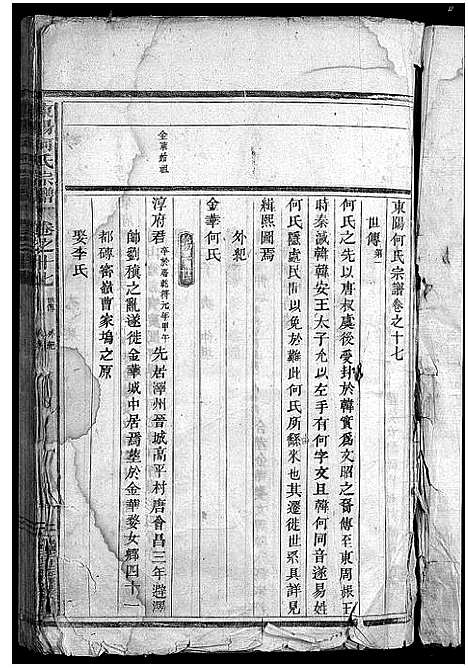 東陽何氏宗譜卷之十七
世傳第一
何氏之先以唐叔虞後受封於韓實爲文昭之裔傳至東周赧王
時秦滅韓韓安王太子允以左手有何字文且韓何同音遂易姓
何氏隱處民間以免於難此何氏所繇來也其遷徙世系具詳見
緝熙圖焉
外紀
金華何氏
金華始祖
淳府君 卒於唐乾符元年甲午 先居澤州晉城高平村唐會昌三年避澤
師劉稹之亂遂徙金華城中居焉墓於金華婺女鄉四十一
都磚窰嶺曹家塢之原
娶李氏
東陽何氏宗譜
卷之十七
世傳
外紀